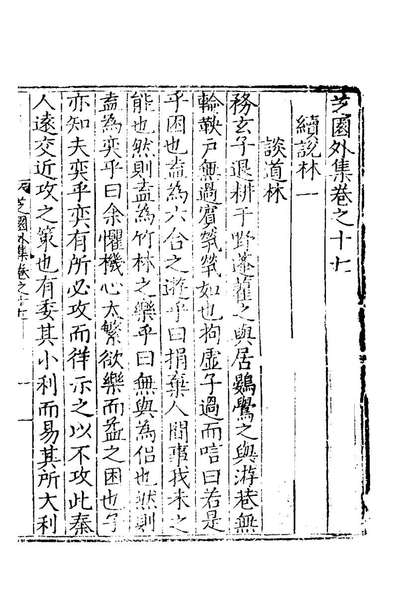 芝園外集卷之十七
續說林一
談道林
務玄子退耕于野蓬藋之與居鷃鷽之與游巷無
輪鞅戶無過賓煢煢如也拘虛子過而唁曰若是
乎困也盍為六合之遊乎曰捐棄人間事我未之
能也然則盍為竹林之樂乎曰無與為侶也然則
盍為奕乎曰余懼機心太繁欲樂而益之困也子
亦知夫奕乎奕有所必攻而佯示之以不攻此秦
人遠交近攻之策也有委其小利而易其所大利
芝園外集卷之十七 一